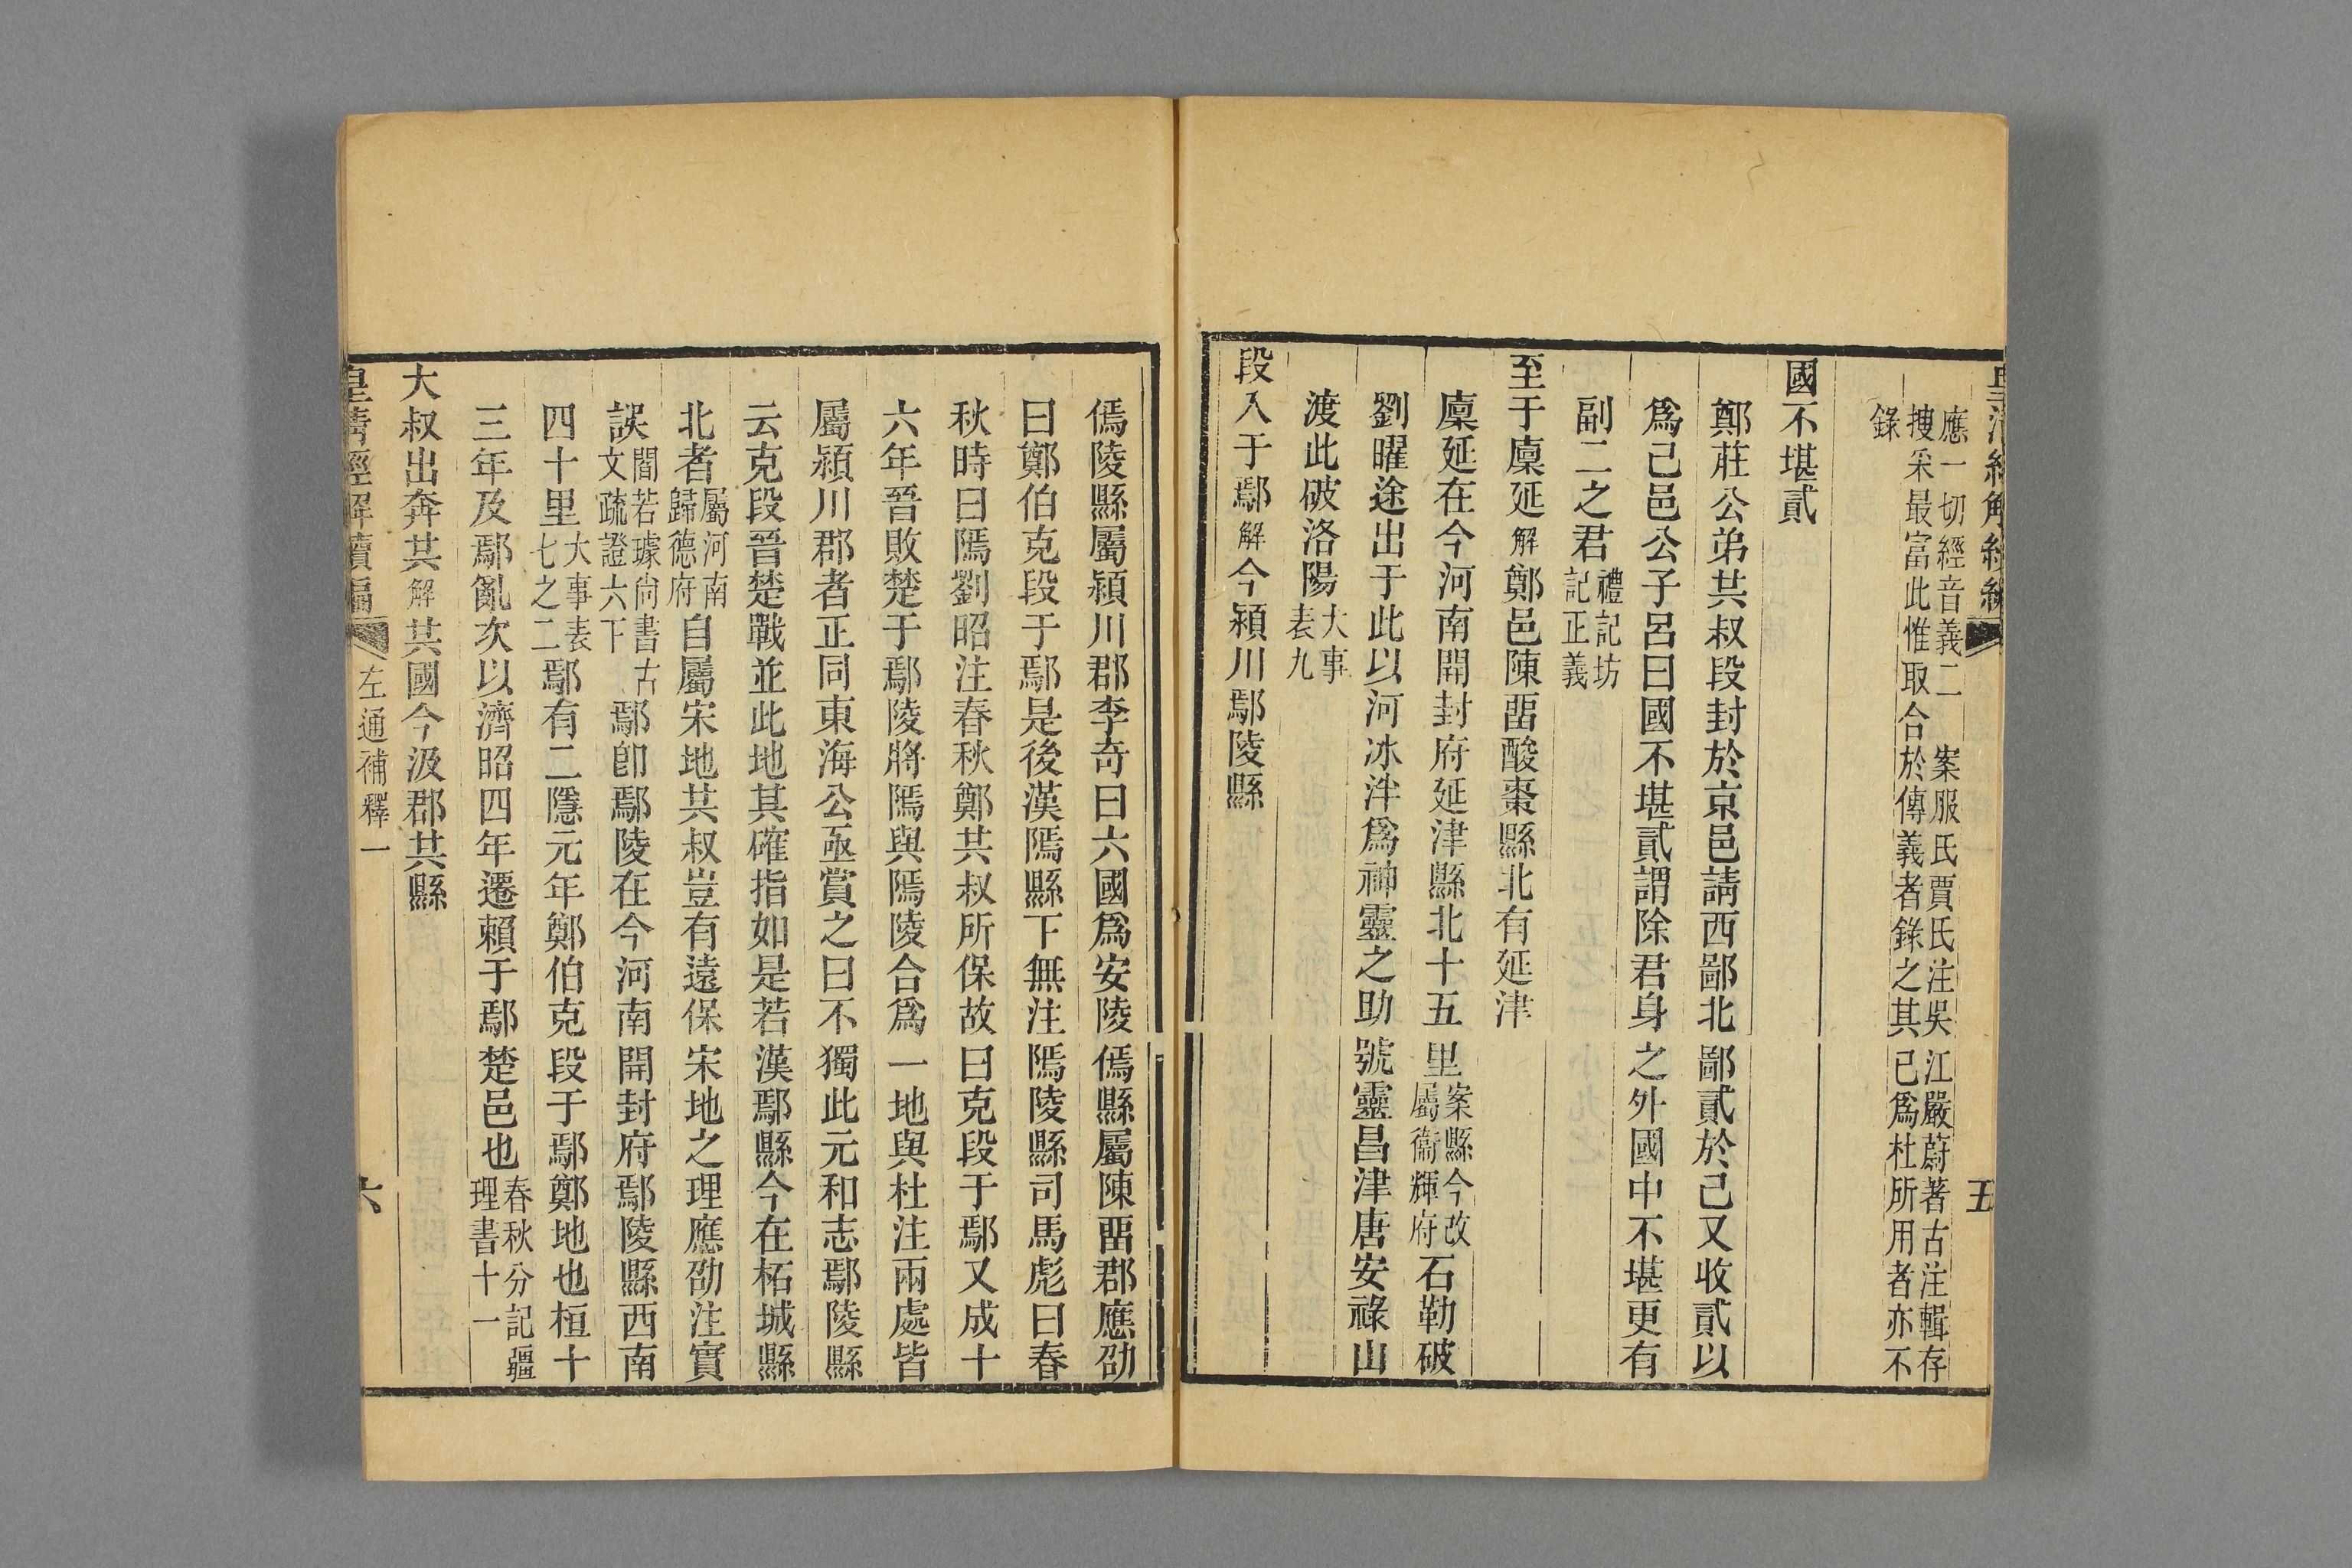 皇清經解續編
五
應一切經音義二　案服氏賈氏注吳江嚴蔚著古注輯存
搜采最富此惟取合於傳義者錄之其已爲杜所用者亦不
錄
國不堪貳
鄭莊公弟共叔段封於京邑請西鄙北鄙貳於己又收貳以
爲己邑公子呂曰國不堪貳謂除君身之外國中不堪更有
副二之君禮記坊記正義
至于廩延解鄭邑陳畱酸棗縣北有延津
廩延在今河南開封府延津縣北十五里案縣今改屬衞輝府石勒破
劉曜途出于此以河冰泮爲神靈之助號靈昌津唐安祿山
渡此破洛陽大事表九
段入于鄢解今潁川鄢陵縣
傿陵縣屬潁川郡李奇曰六國爲安陵傿縣屬陳畱郡應劭
曰鄭伯克段于鄢是後漢隖縣下無注隖陵縣司馬彪曰春
秋時曰隖劉昭注春秋鄭共叔所保故曰克段于鄢又成十
六年晉敗楚于鄢陵將隖與隖陵合爲一地與杜注兩處皆
屬潁川郡者正同東海公亟賞之曰不獨此元和志鄢陵縣
云克段晉楚戰並此地其確指如是若漢鄢縣今在柘城縣
北者屬河南歸德府自屬宋地共叔豈有遠保宋地之理應劭注實
誤閻若璩尙書古文疏證六下鄢卽鄢陵在今河南開封府鄢陵縣西南
四十里大事表七之二鄢有二隱元年鄭伯克段于鄢鄭地也桓十
三年及鄢亂次以濟昭四年遷賴于鄢楚邑也春秋分記疆理書十一
大叔出奔共解共國今汲郡共縣
皇清經解續編
左通補釋一
六